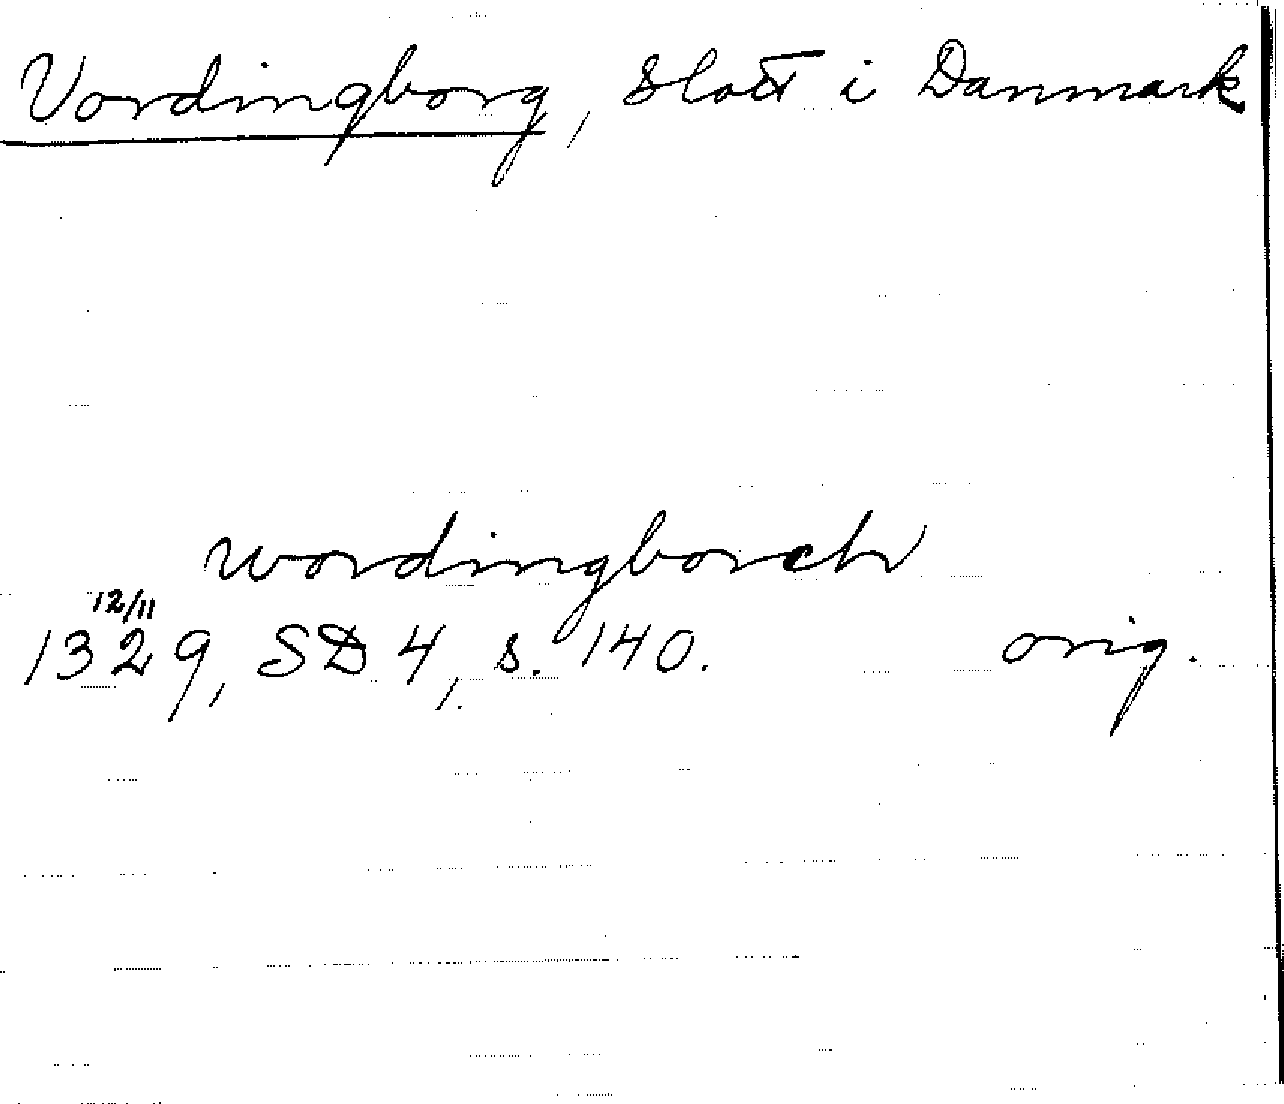 Vordingborg, slott i Danmark
wordingborch
12/11
1329, SD 4, s. 140. orig.